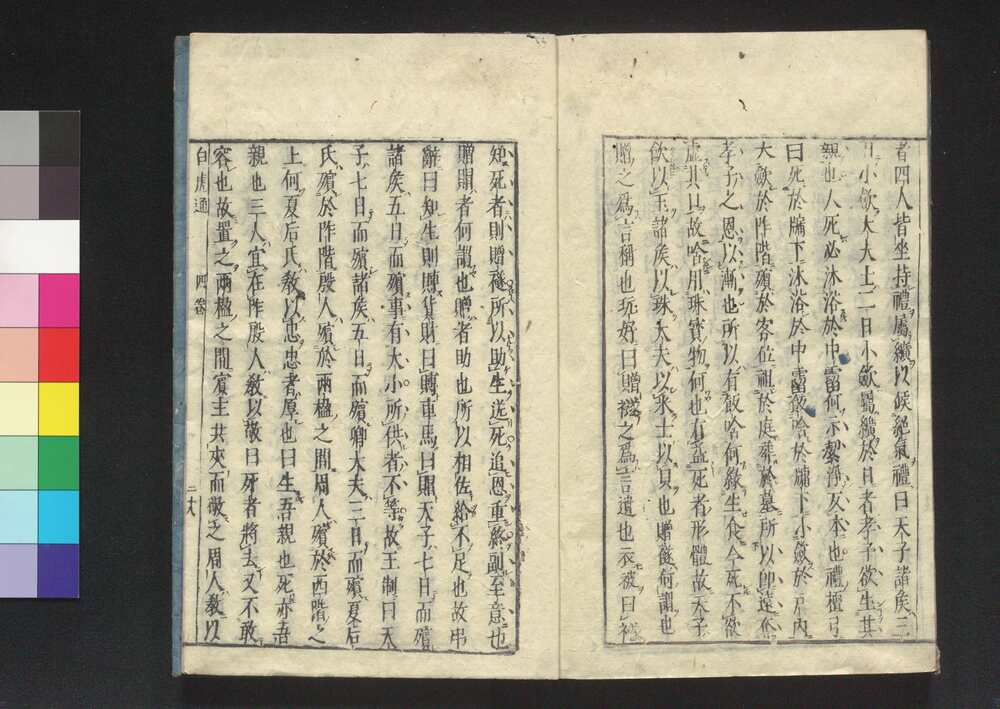 者四人皆坐持禮屬纊以候絕氣禮曰天子諸侯三
日小斂大夫士二日小斂屬纊於口者孝子欲生其
親也人死必沐浴於中霤何示潔淨反本也禮檀弓
曰死於牖下沐浴於中霤飯唅於牖下小斂於戶內
大斂於阼階殯於客位祖於庭葬於墓所以即遠也
孝子之恩以漸也所以有飯唅何緣生食今死不欲
虛其口故唅用珠寶物何也有益死者形體故天子
飯以玉諸侯以珠大夫以米士以貝也贈襚何謂也
贈之為言稱也玩好曰贈襚之為言遺也衣被曰襚
知死者則贈襚所以助生送死追恩重終副至意也
賻賵者何謂也賻者助也所以相佐給不足也故弔
辭曰知生則賻貨財曰賻車馬曰賵天子七日而殯
諸侯五日而殯事有大小所供者不等故王制曰天
子七日而殯諸侯五日而殯卿大夫三日而殯夏后
氏殯於阼階殷人殯於兩楹之間周人殯於西階之
上何夏后氏教以忠忠者厚也曰生吾親也死亦吾
親也三人宜在阼殷人教以敬曰死者將去又不敢
容也故置之兩楹之間賓主共夾而敬之周人教以
白虎通 四卷 二十八